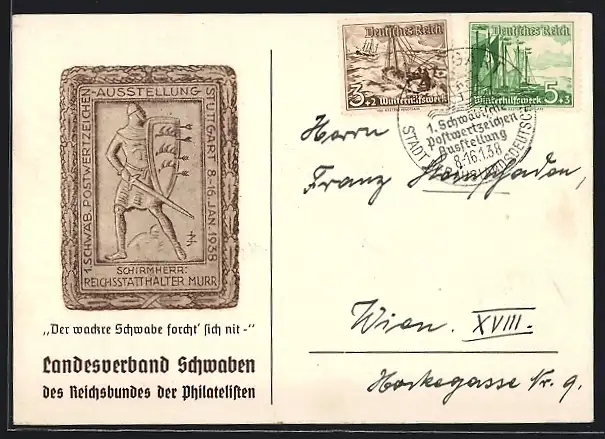 1. SCHWÄB. POSTWERTZEICHEN-AUSSTELLUNG STUTTGART 8.-16. JAN. 1938
SCHIRMHERR:
REICHSSTATTHALTER MURR
„Der wackre Schwabe forcht' sich nit-“
Landesverband Schwaben
des Reichsbundes der Philatelisten
Deutsches Reich
3+2 Winterhilfswerk
Deutsches Reich
Winterhilfswerk 5+3
1. Schwäbische
Postwertzeichen
Ausstellung
8.-16.1.38
STADT
Herrn
Franz
Wien. XVIII.
Hockegasse Nr. 9.